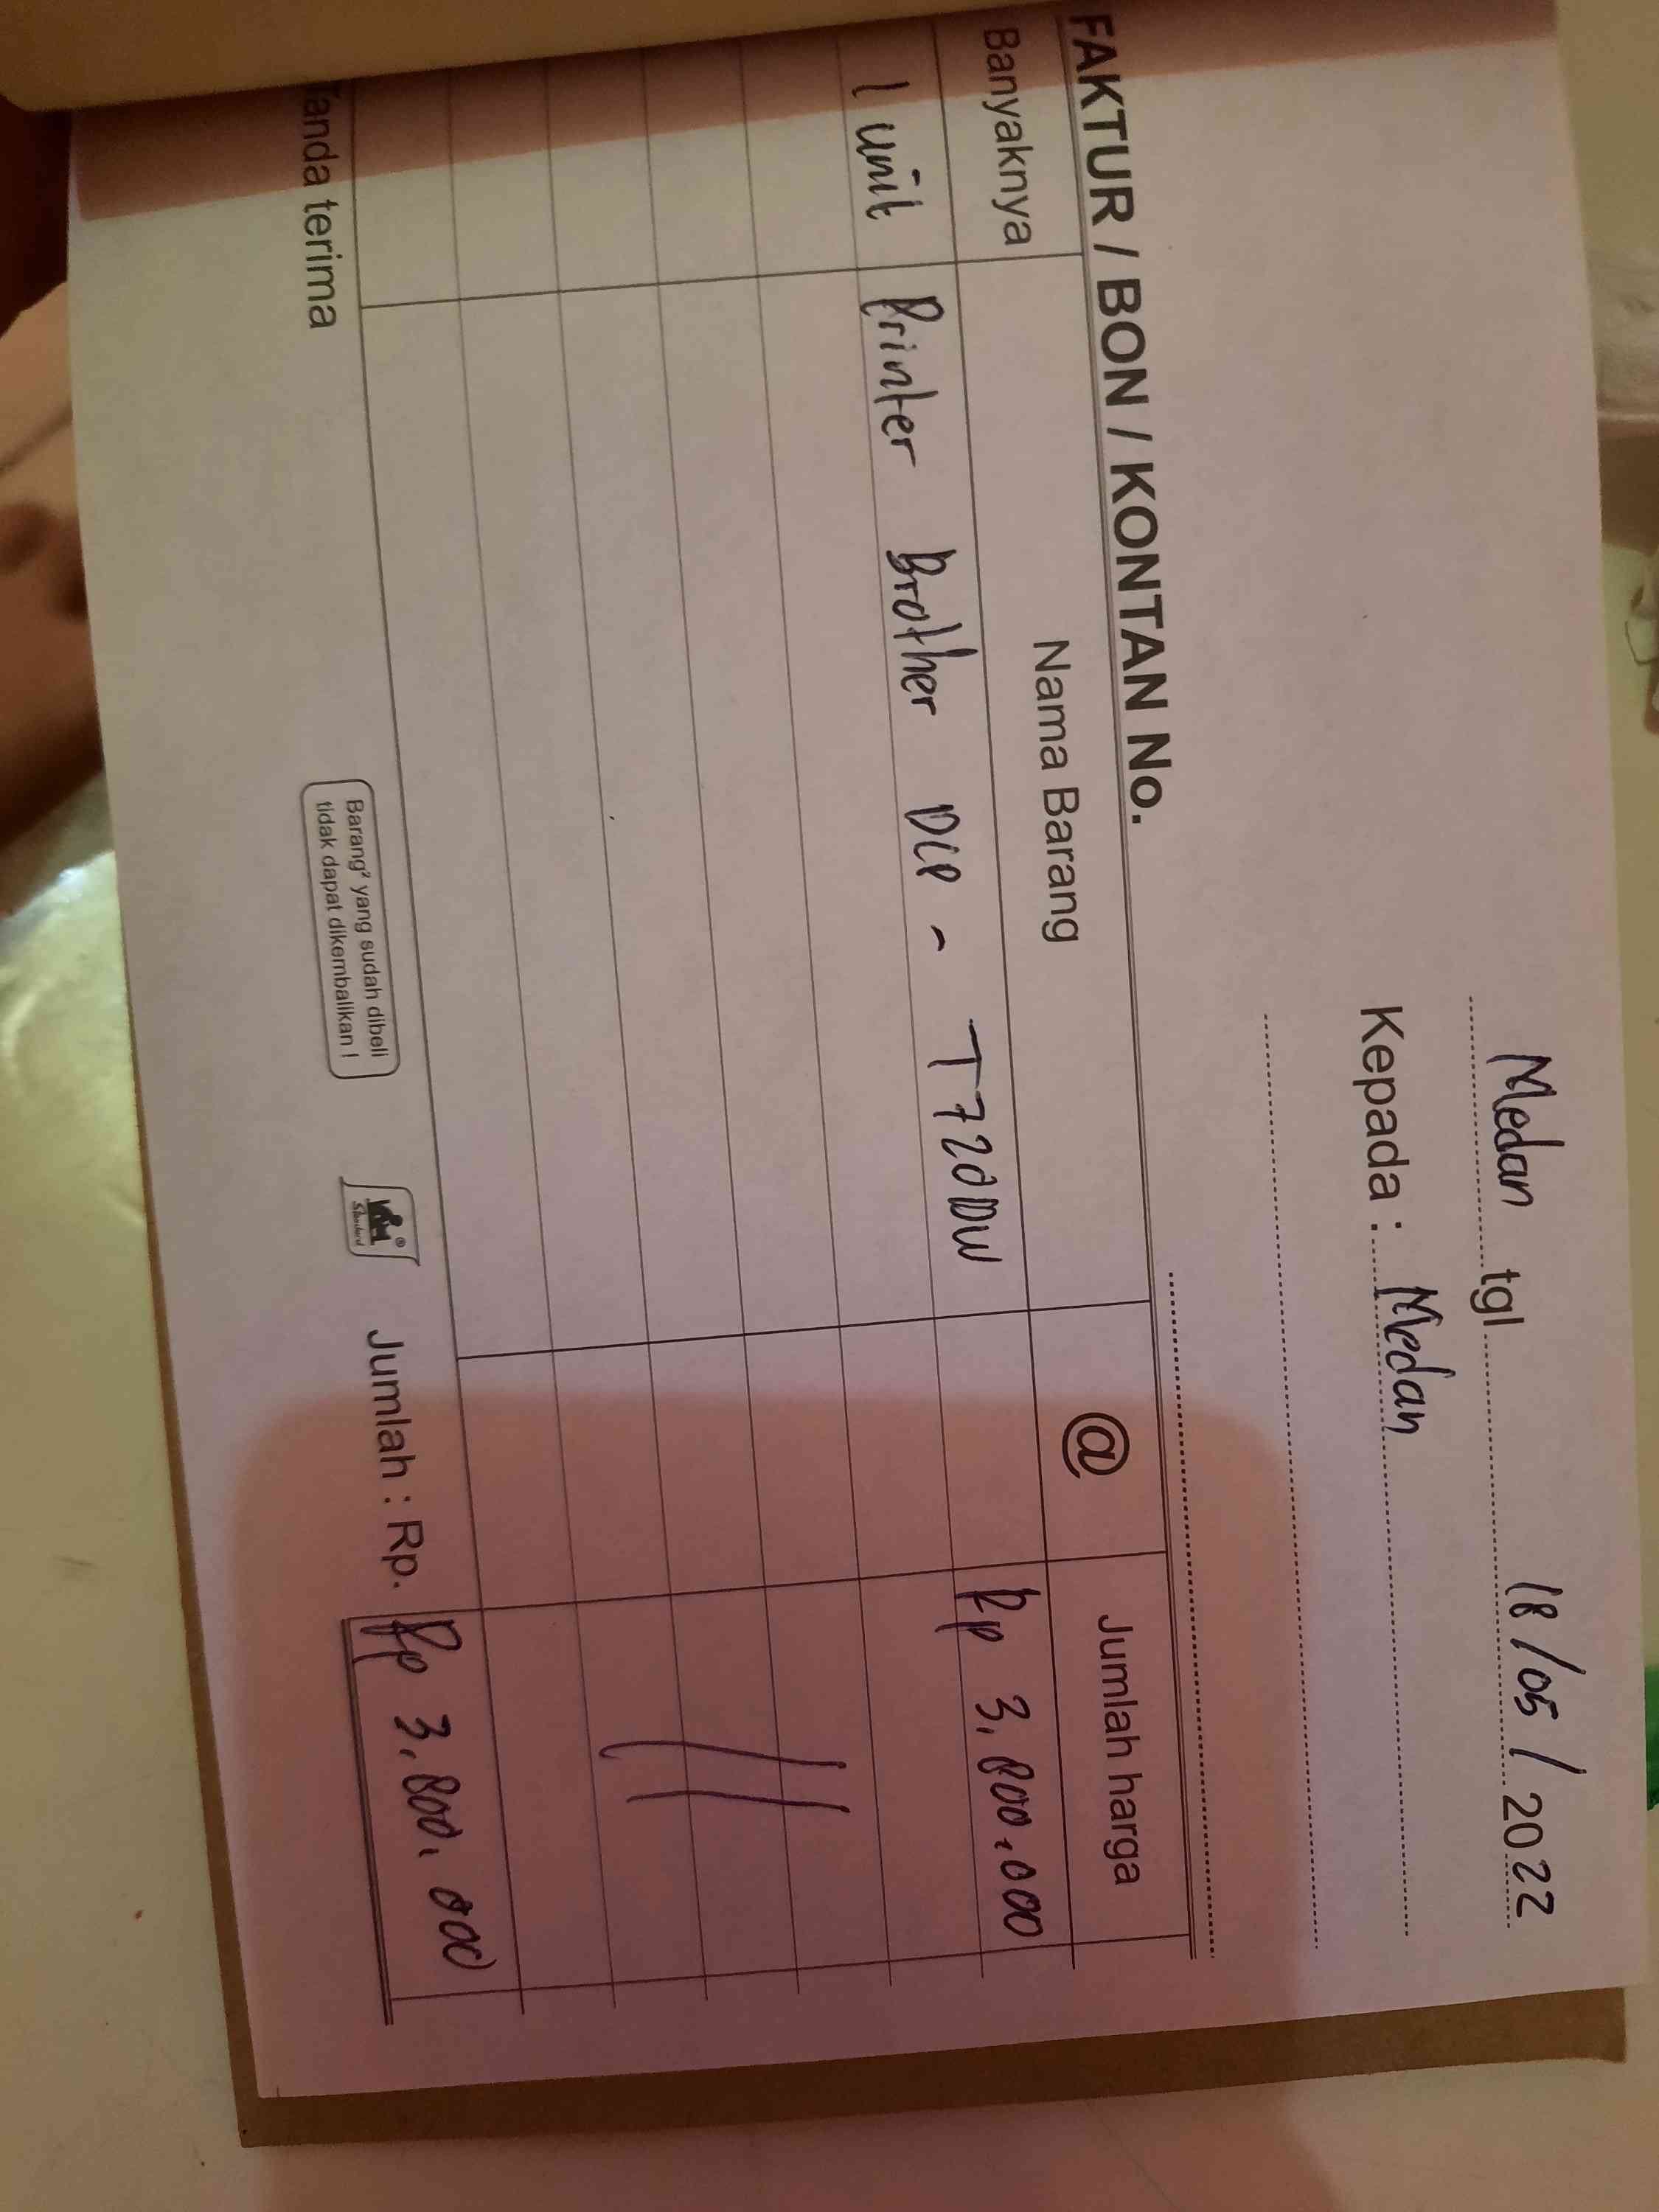 Medan tgl 18/05/2022
Kepada : Medan
FAKTUR / BON / KONTAN No.
Banyaknya Nama Barang @ Jumlah harga
1 unit Printer Brother DCP - T720DW Rp 3.800.000
Tanda terima
Barang² yang sudah dibeli
tidak dapat dikembalikan !
Standard
Jumlah : Rp. Rp 3.800.000